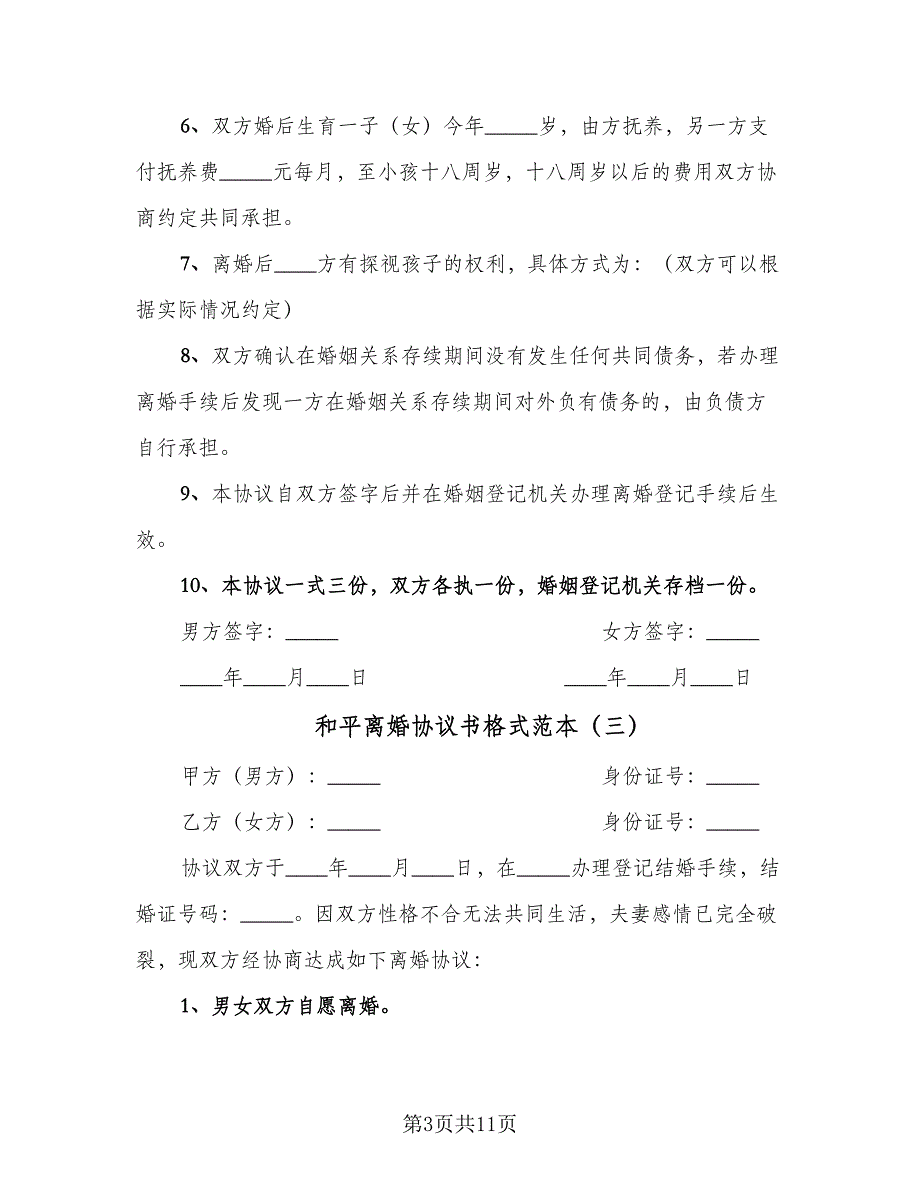 6、双方婚后生育一子（女）今年_____岁，由方抚养，另一方支
付抚养费_____元每月，至小孩十八周岁，十八周岁以后的费用双方协
商约定共同承担。
7、离婚后____方有探视孩子的权利，具体方式为：（双方可以根
据实际情况约定）
8、双方确认在婚姻关系存续期间没有发生任何共同债务，若办理
离婚手续后发现一方在婚姻关系存续期间对外负有债务的，由负债方
自行承担。
9、本协议自双方签字后并在婚姻登记机关办理离婚登记手续后生
效。
10、本协议一式三份，双方各执一份，婚姻登记机关存档一份。
男方签字：_____ 女方签字：_____
____年____月____日 ____年____月____日
和平离婚协议书格式范本（三）
甲方（男方）：_____ 身份证号：_____
乙方（女方）：_____ 身份证号：_____
协议双方于____年____月____日，在_____办理登记结婚手续，结
婚证号码：_____。因双方性格不合无法共同生活，夫妻感情已完全破
裂，现双方经协商达成如下离婚协议：
1、男女双方自愿离婚。
第3页共11页